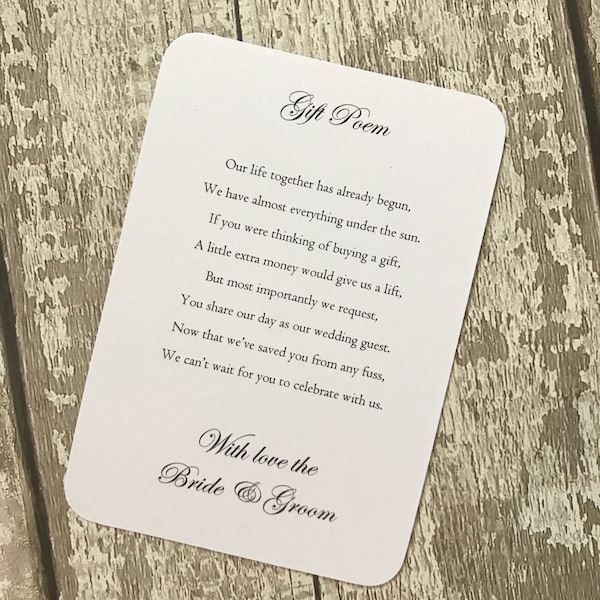 Gift Poem
Our life together has already begun,
We have almost everything under the sun.
If you were thinking of buying a gift,
A little extra money would give us a lift,
But most importantly we request,
You share our day as our wedding guest.
Now that we've saved you from any fuss,
We can't wait for you to celebrate with us.
With love the
Bride & Groom